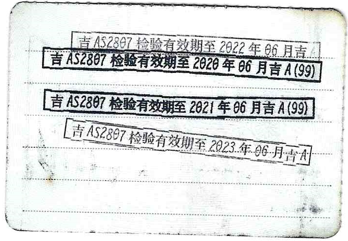 吉AS2807 检验有效期至 2022 年 06 月吉A
吉AS2807 检验有效期至 2020 年 06 月吉A(99)
吉AS2807 检验有效期至 2021 年 06 月吉A(99)
吉AS2807 检验有效期至 2023 年 06 月吉A